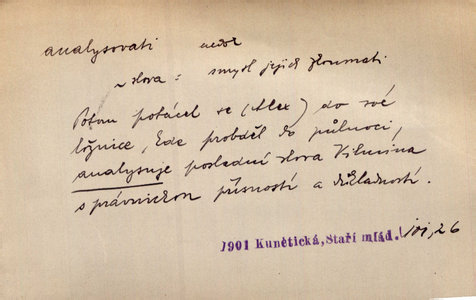 analysovati nedok
~ slova: smysl jejich zkoumati.
Potom potácel se (Alex) do své
ložnice, kde proběděl do půlnoci,
analysuje poslední slova Vilmina
s právnickou přísností a důkladností.
1901 Kunětická, Staří mlád. 101, 26